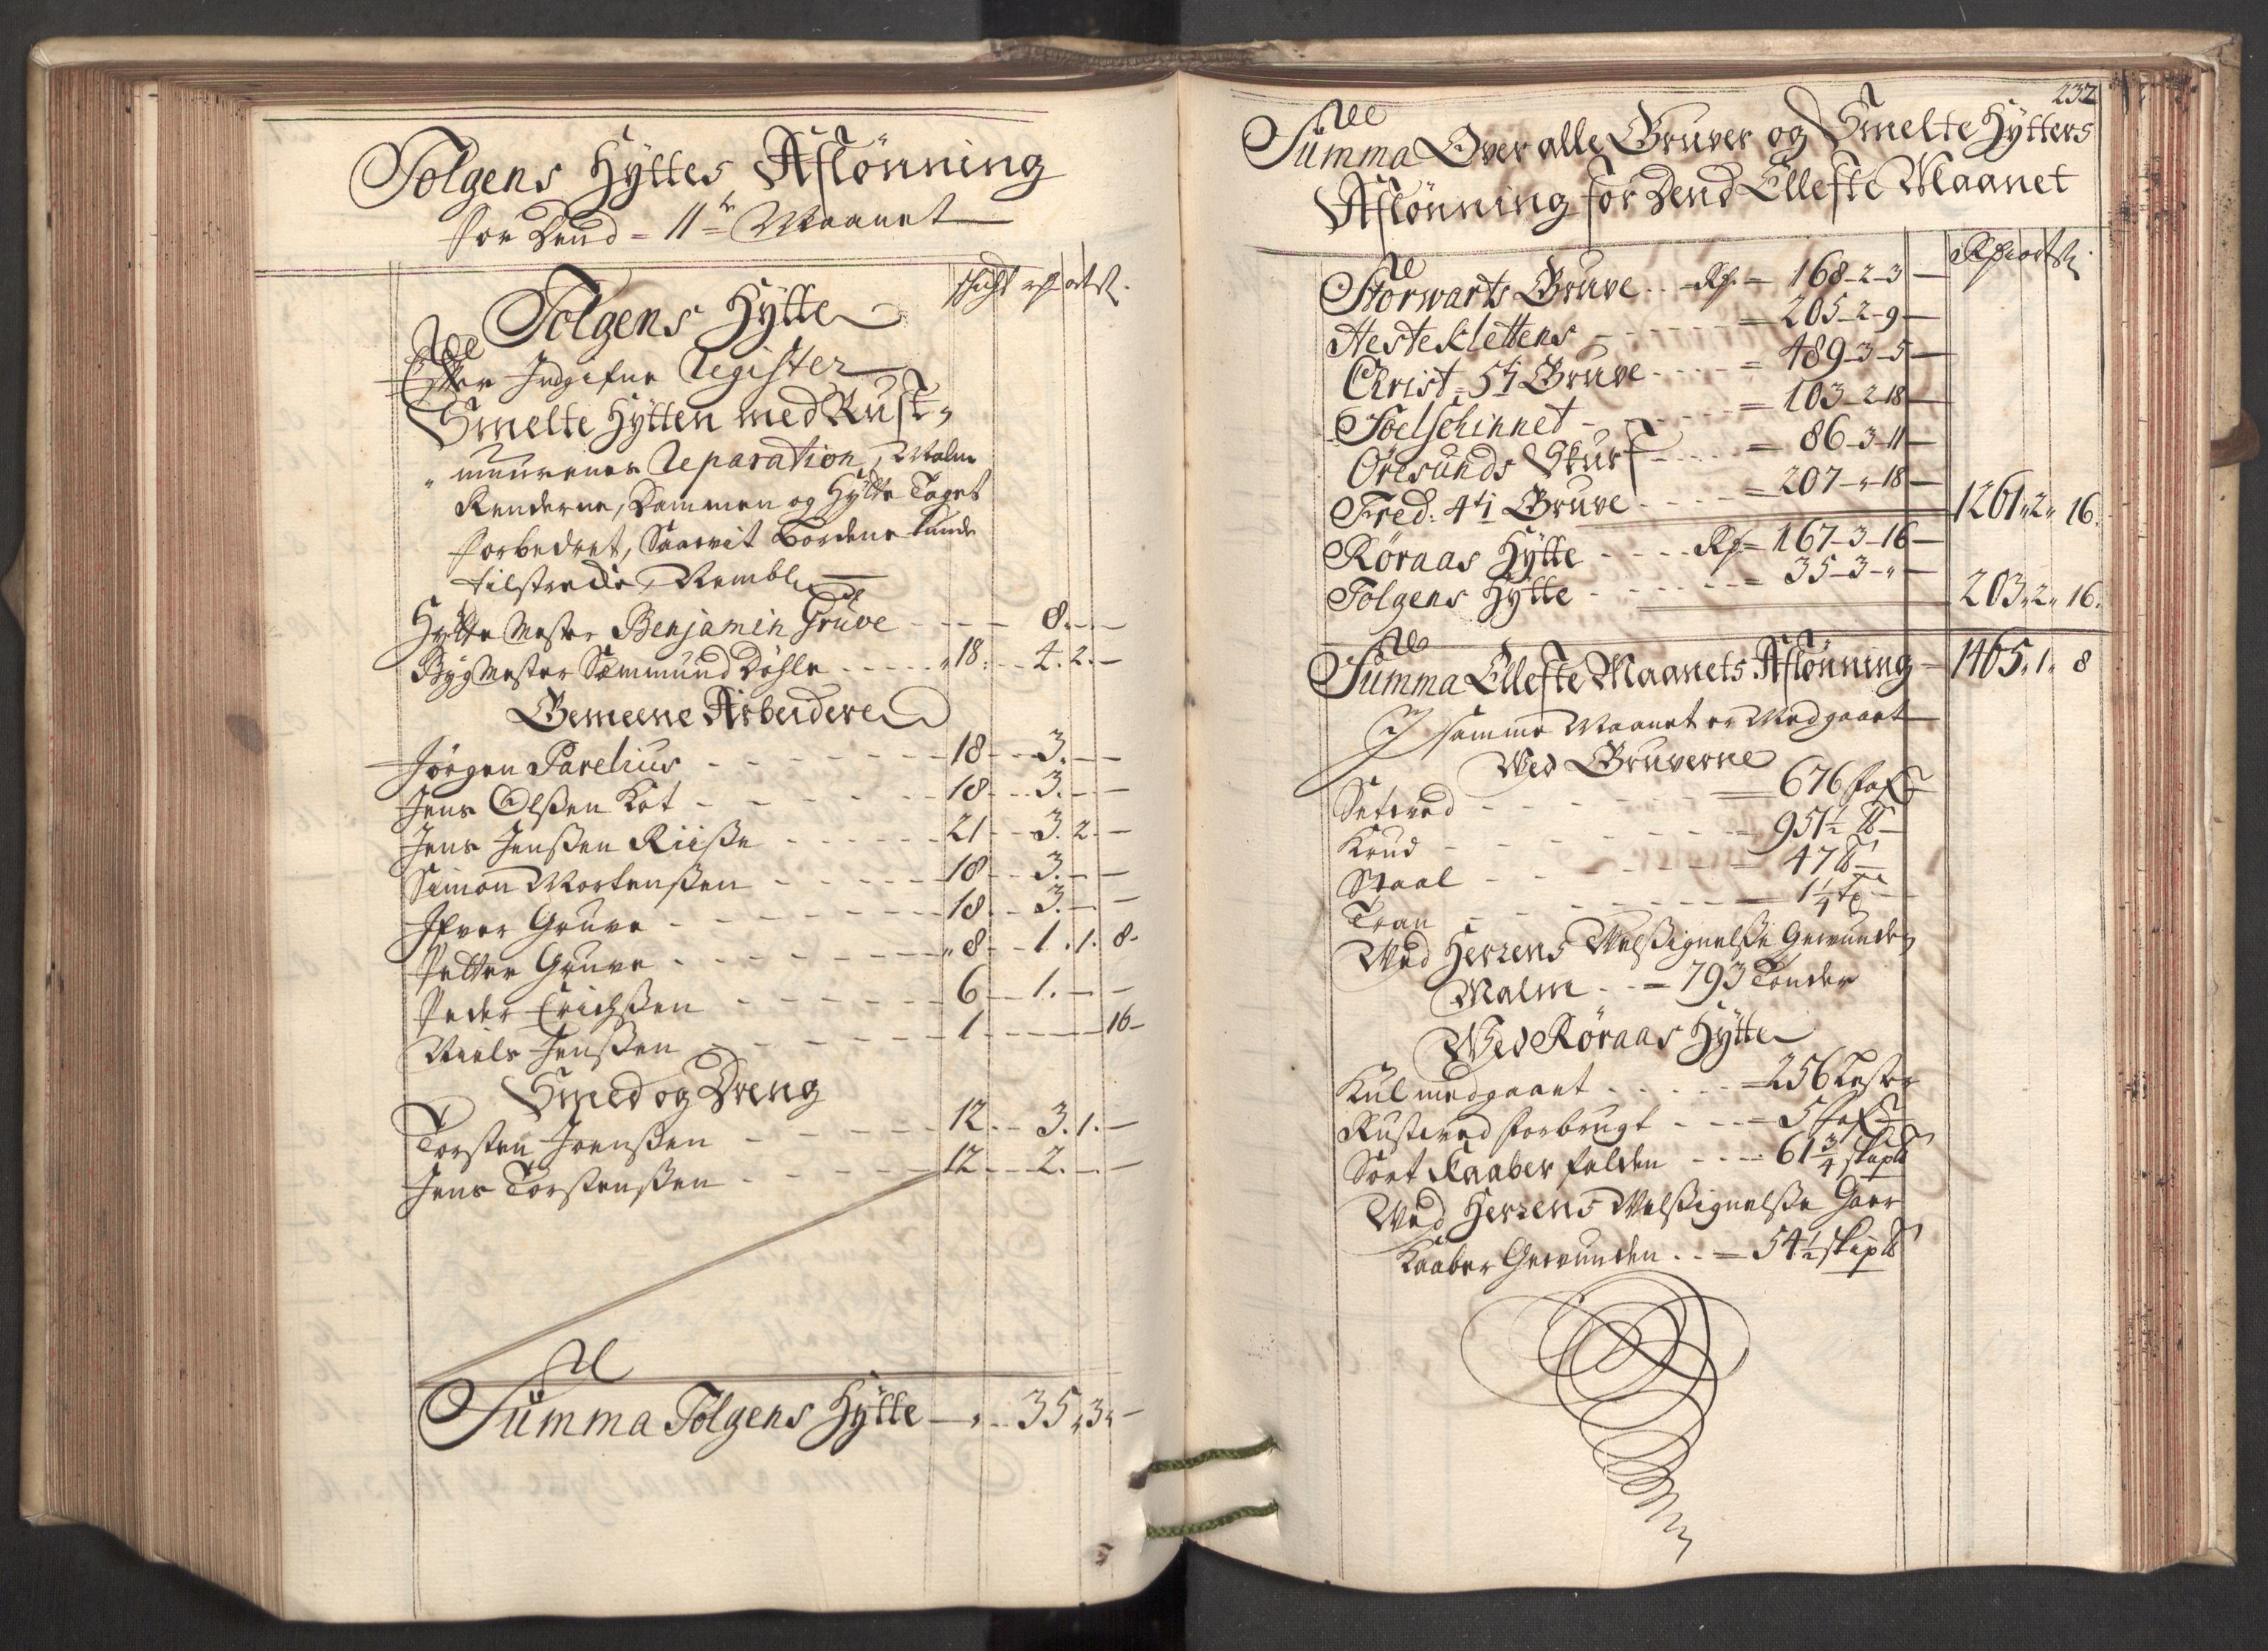 Tolgens Hÿttes Aflønning
for Dend = 11te Maanet
schicht rdr ort s.
Tolgens Hÿtte
Efter Indgifne Register
Smelte Hÿtten med Rust-
muurenes Reparation, Malm
Renderne, Dammen og Hÿtte Taget
forbedret, Saavit Bordene kunde
tilstrecke,
Hÿtte Mester Benjamin Gruve - - - 8. - -
Bÿgmester Sæmmund Döhle - - - - - 18. - - 4. 2. -
Gemeene Arbeidere
Jörgen Parelius - - - - - - 18 - - 3. - -
Jens Olsßen Kot - - - - - - 18 - - 3. - -
Jens Jensßen Riisße - - - - - 21 - - 3. 2. -
Simon Mortensßen - - - - - 18 - - 3. - -
Ifver Gruve - - - - - - - 18. - - 3. - -
Petter Gruve - - - - - - - „8 - - 1. 1. 8-
Peder Erichsßen - - - - - 6 - - 1. - -
Niels Jensßen - - - - - - 1 - - - - - 16-
Smed og Dreng
Torsten Joensßen - - - - - 12. - - 3. 1. -
Jens Torstensßen - - - - - 12 - - 2. - -
Summa Tolgens Hÿtte - „ - - 35„3„ -
232
Summa Over alle Gruver og Smelte Hÿtters
Aflønning for Dend Ellefte Maanet
Rdr ort s.
Storwarts Gruve - - Rdr = 168-2-3 -
Hesteklettens - - - - - = 205-2-9 -
Christ: 5ti Gruve - - - - = 489-3-5 -
Soelschinnet - - - - - = 103-2-18 -
Öresunds Skurf - - - - = 86-3-11 -
Fred: 4ti Gruve - - - - = 207-„-18 - 1261„2„ 16.
Röraas Hÿtte - - - - Rdr = 167-3-16 -
Tolgens Hÿtte - - - - - = 35-3-„ - 203„2„ 16.
Summa Ellefte Maanets Aflønning - 1465„1„ 8
I samme Maanet er Medgaaet
Ved Gruverne
Setteved - - - - - - 676 faf:
Krud - - - - - - - 951½ ℔ -
Staal - - - - - - - 47 ℔ -
Tran - - - - - - - 1¼ tde
Med Herrens Velsßignelsße Gewunden
Malm - - = 793 Tønder
Ved Röraas Hÿtte
Kul medgaaet - - - - - = 256 Lester
Rusteved forbrugt - - - = 5 faf:
Sort Kaaber falden - - - - 61¾ skip℔
Med Herrens Velsßignelsße Gaer
Kaaber Gewunden - - = 54½ skip℔